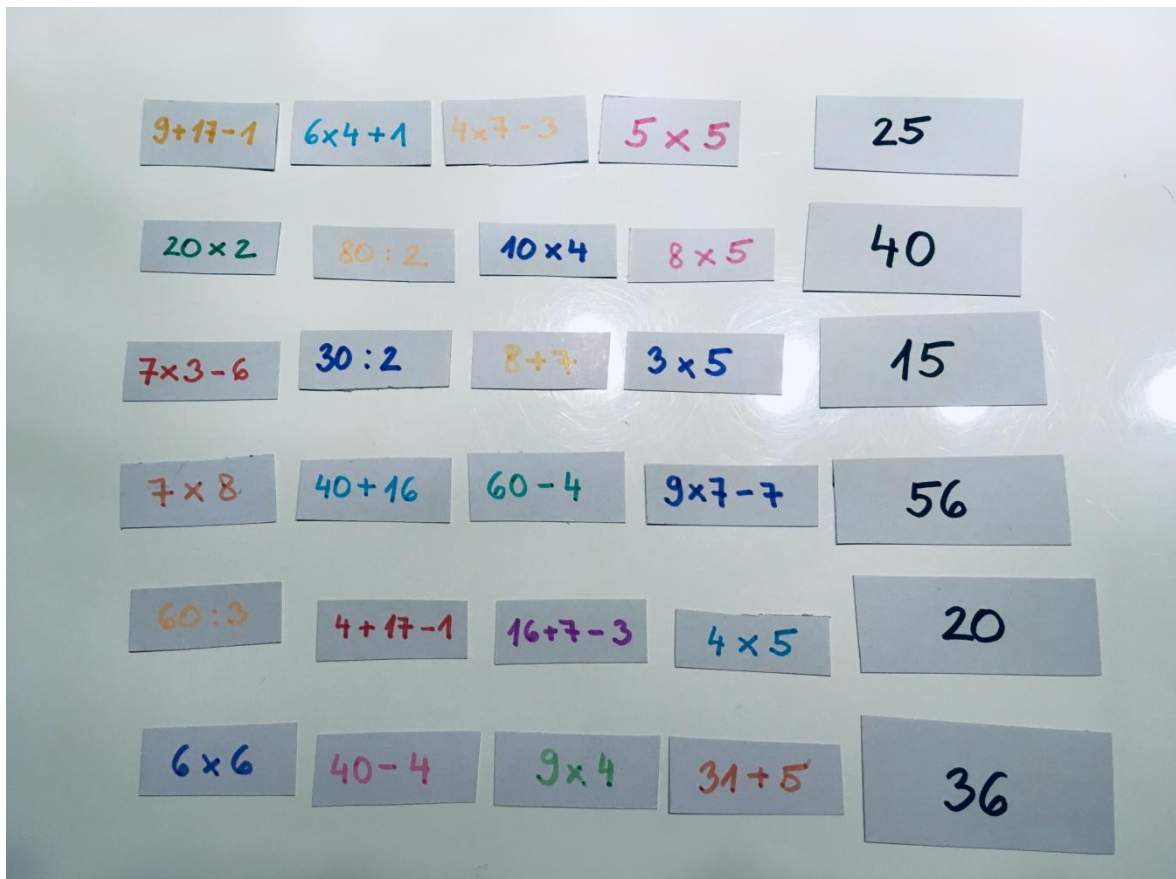 9+17-1 6x4+1 4x7-3 5x5 25
20x2 80:2 10x4 8x5 40
7x3-6 30:2 8+7 3x5 15
7x8 40+16 60-4 9x7-7 56
60:3 4+17-1 16+7-3 4x5 20
6x6 40-4 9x4 31+5 36